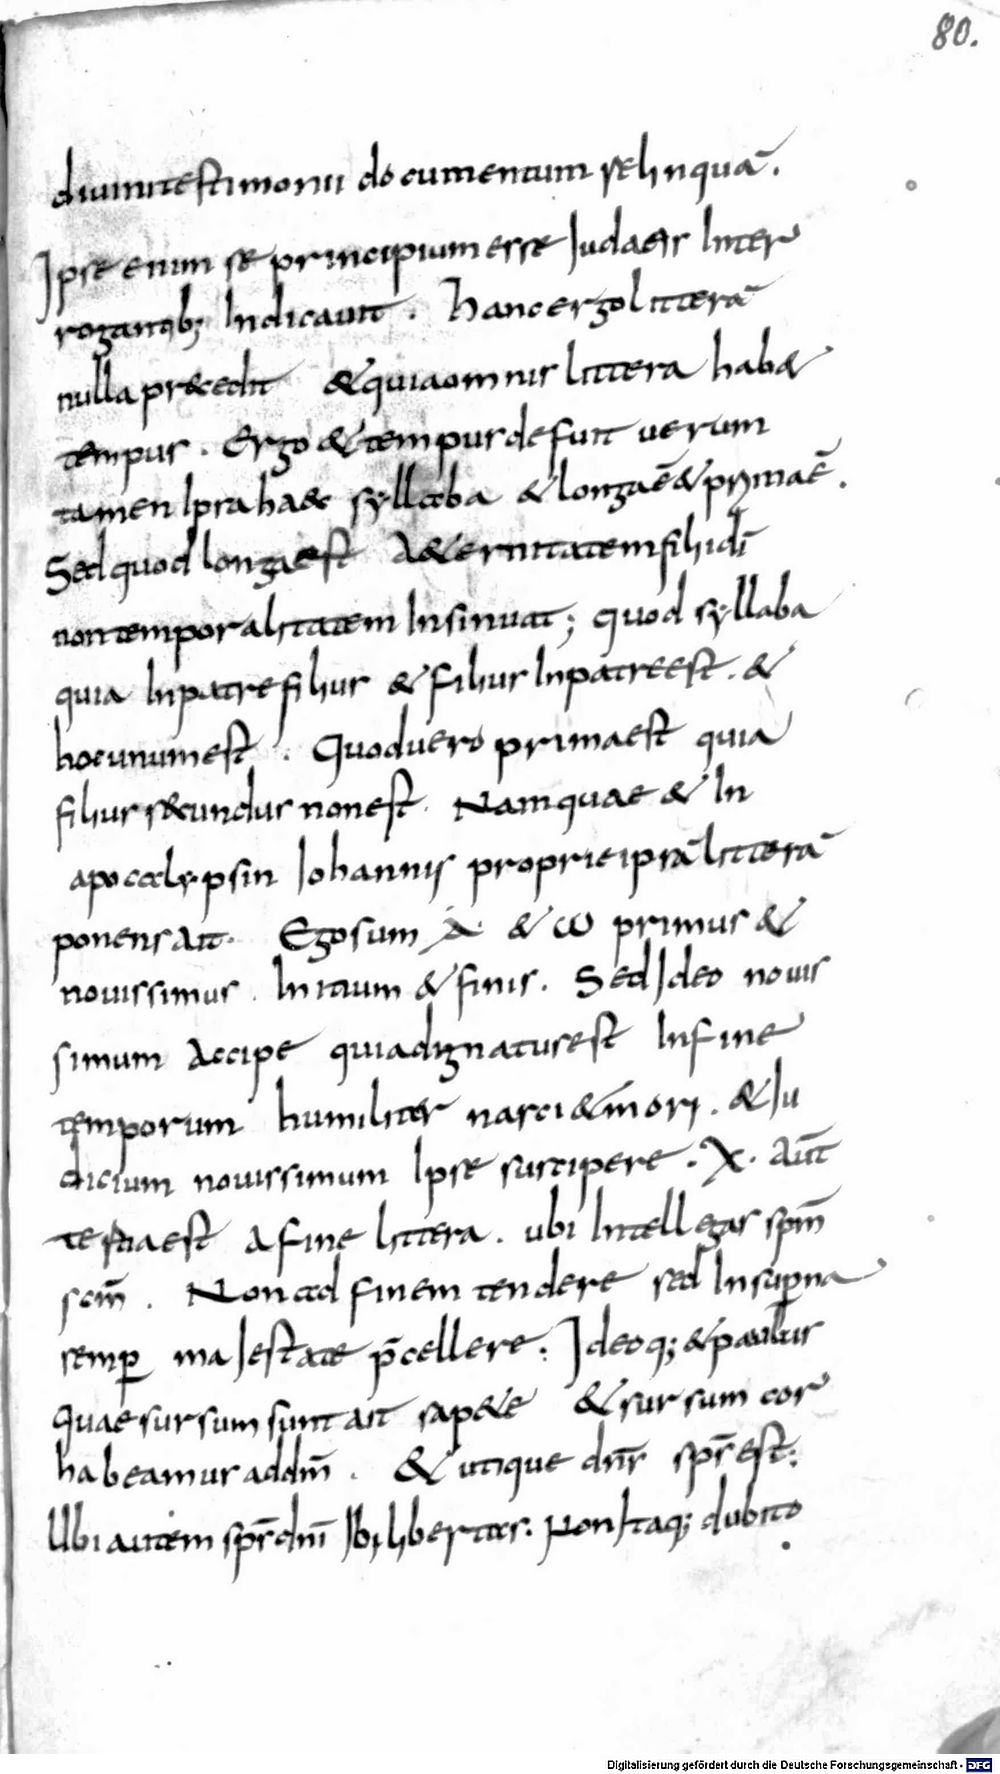 80.
diuinitestimonii documentum relinquā.
Ipse enim se principium esse Iudaeis Inter
rogantib; Indicauit. Hanc ergo litterā
nulla praecedit & quia omnis littera hab&
tempus. Ergo & tempus defuit uerum
tamen Ipsa ha&c syllaba & longaē & primaē.
Sed quod longa est A&ernitatem filii dī
non temporalitatem Insinuat; quod syllaba
quia Inpatre filius & filius Inpatre est. &
hoc unum est. Quod uero prima est quia
filius secundus non est. Nam quae & In
apocalypsin Iohannis proprie ipsā litterā
ponens Ait. Ego sum A & ω primus &
nouissimus. Initium & finis. Sed Ideo nouis
simum Accipe quia dignatus est Infine
temporum humiliter nasci & mori. & Iu
dicium nouissimum Ipse suscipere. X. Aūt
testia est A fine littera. ubi Intellegas spm̄
scm̄. Non ad finem tendere sed Insuperna
semp maIestate p̄cellere: Ideoq; & paulus
quae sursum sunt ait sap&e & sursum cor
habeamus ad dm̄. & utique dn̄s spr̄ est:
Ubi autem spr̄ dnī Ibi libertas. Non Itaq; dubito
Digitalisierung gefördert durch die Deutsche Forschungsgemeinschaft - DFG